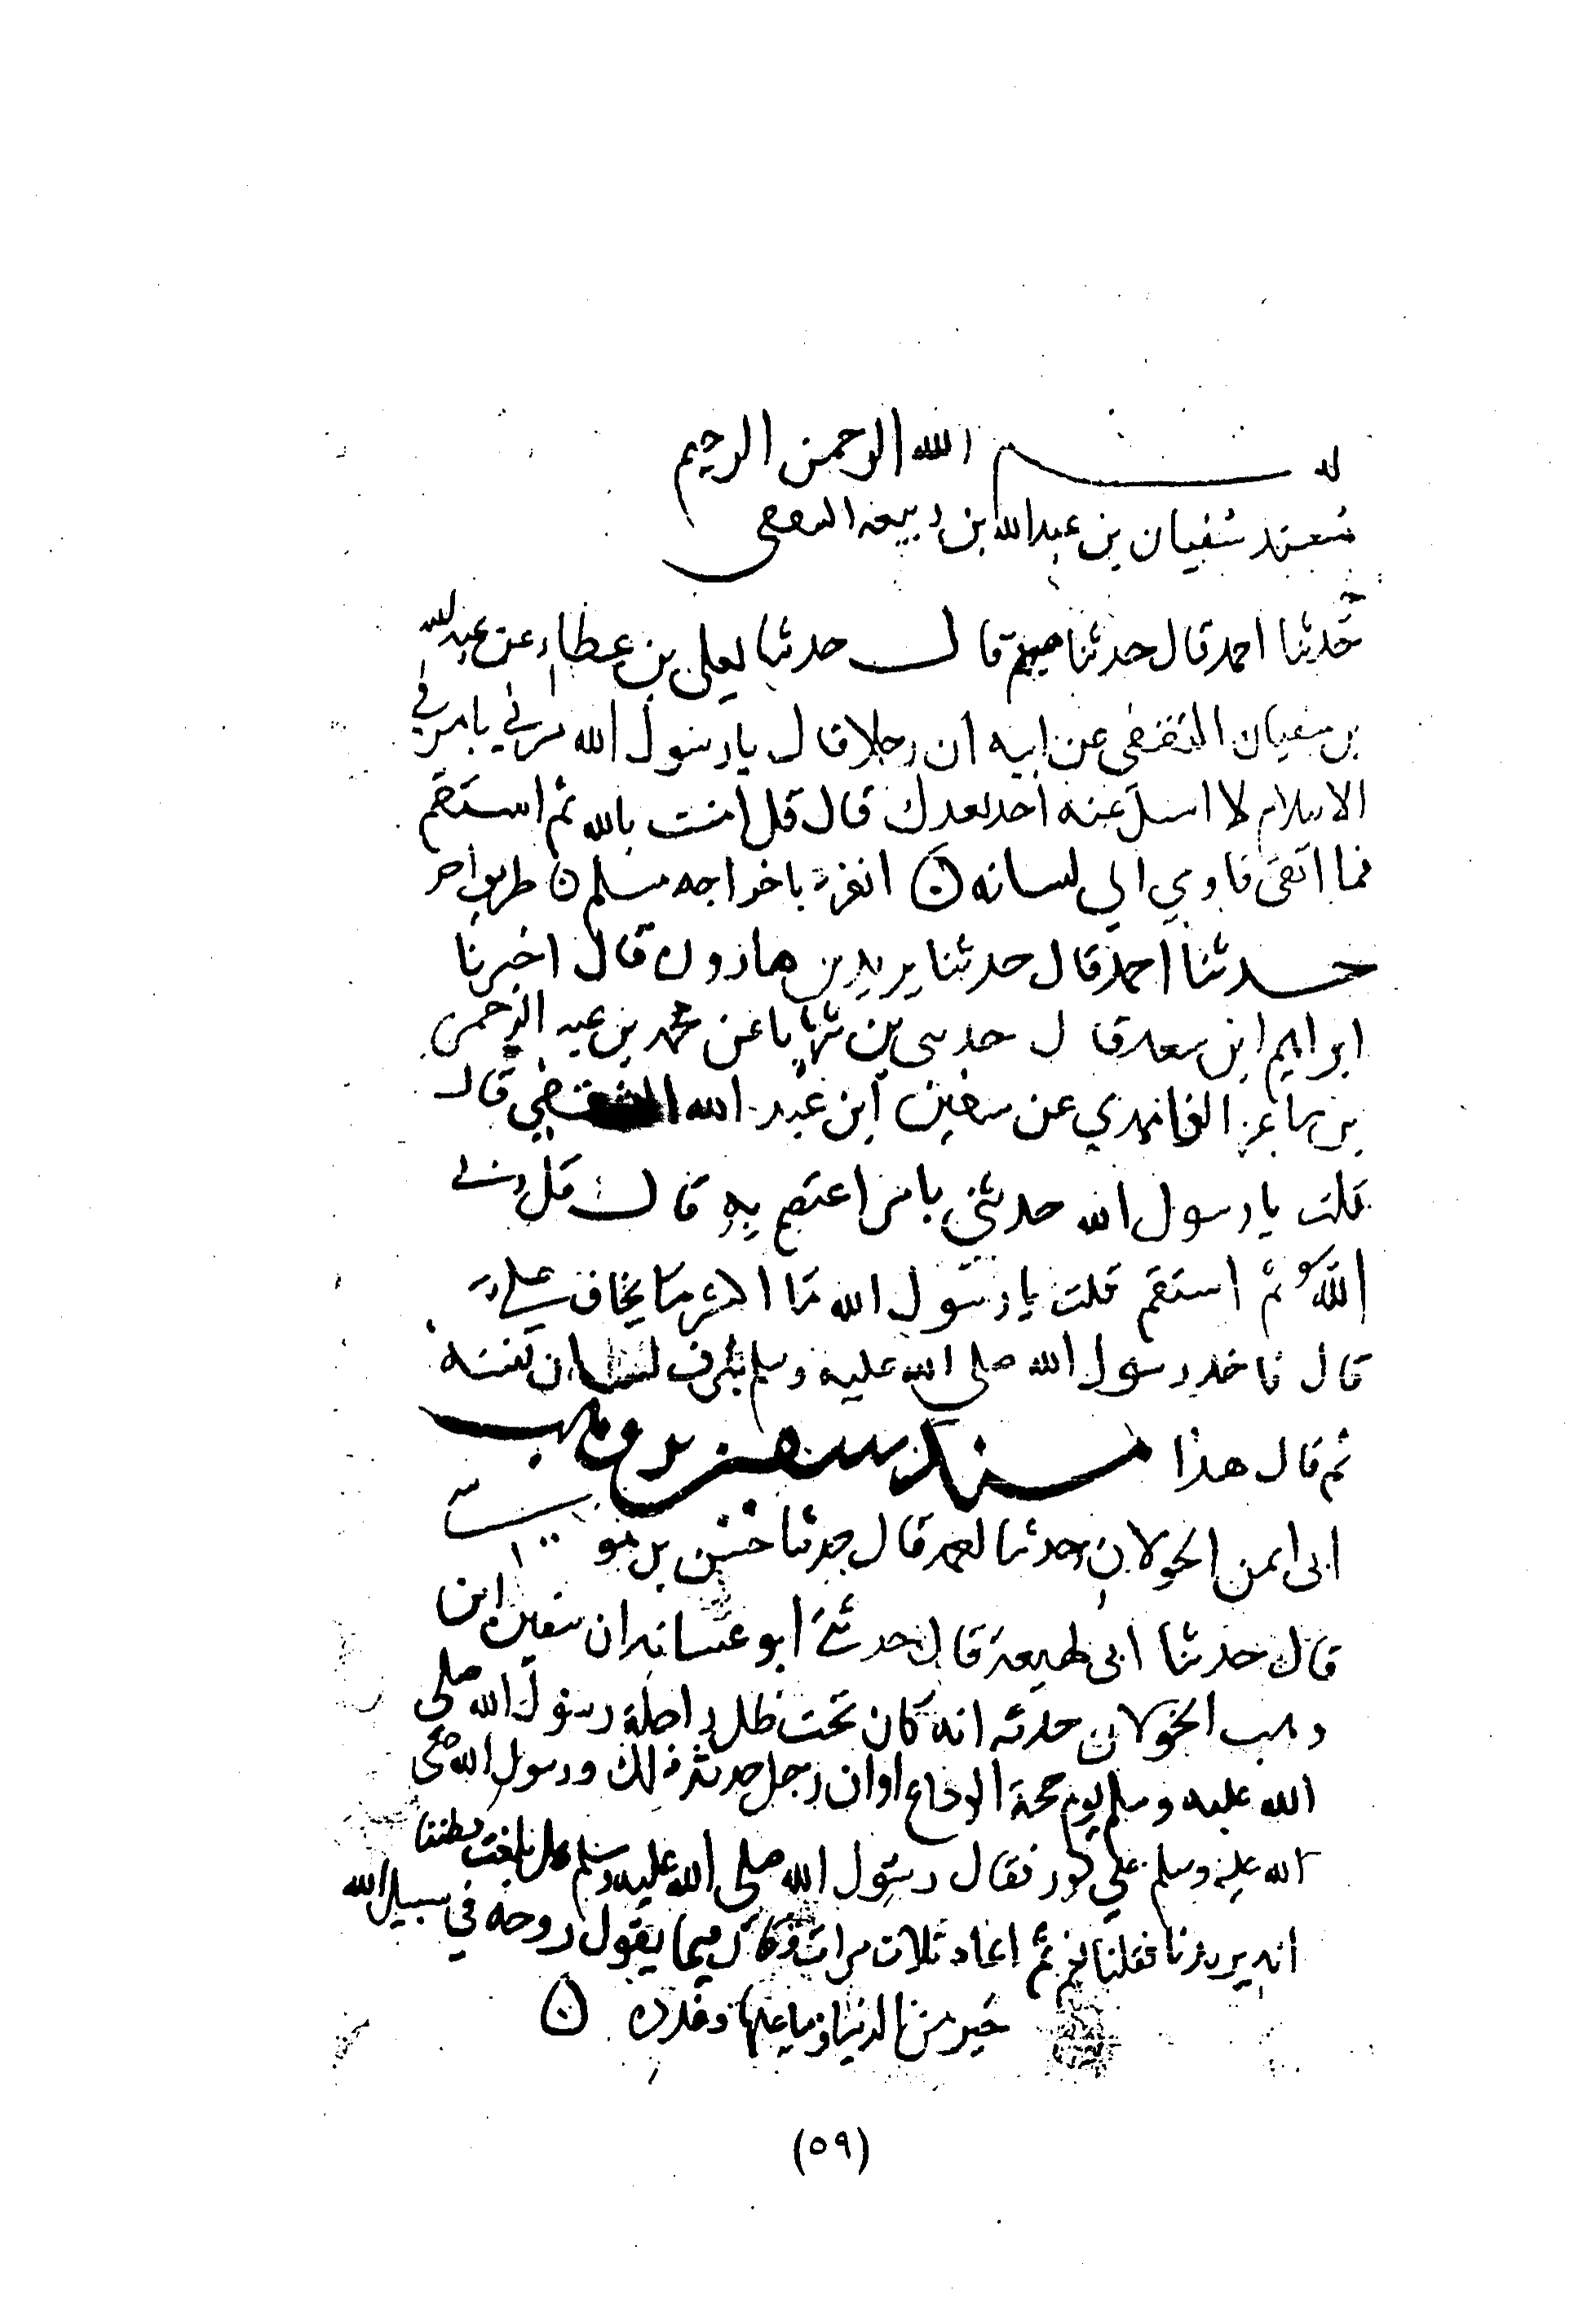 بسم الله الرحمن الرحيم
مسند سفيان بن عبدالله بن ربيعه الثقفي
حدثنا احمد قال حدثنا هيثم قال حدثنا يعلى بن عطاء عن عبد الله
بن سفيان الثقفي عن ابيه ان رجلا قال يا رسول الله مرني بامر في
الاسلام لا اسل عنه احد بعدك قال قل امنت بالله ثم استقم
فما اتقى فاومي الي لسانه انفرد باخراجه مسلم ن طريق اخر
حدثنا احمد قال حدثنا يزيد بن هارون قال اخبرنا
ابراهيم ابن سعد قال حدثني بن شهاب عن محمد بن عبد الرحمن
بن ماعز الغامدي عن سفين ابن عبد الله الثقفي قال
قلت يا رسول الله حدثني بامر اعتصم به قال قل ربي
الله ثم استقم قلت يا رسول الله ما اكثر ما يخاف علي
قال فاخذ رسول الله صلى الله عليه وسلم بطرف لسان نفسه
ثم قال هذا مسند سفين بن وهب
ابى ايمن الخولان حدثنا احمد قال حدثنا حسن بن موسى
قال حدثنا ابى لهيعة قال حدثني ابو عشانه ان سفين ابن
وهب الخولان حدثه انه كان تحت ظل راحلة رسول الله صلى
الله عليه وسلم يوم حجة الوداع او ان رجل حدثه ذلك ورسول الله صلى
الله عليه وسلم على كور فقال رسول الله صلى الله عليه وسلم هل بلغت فظننا
انه يريدنا فقلنا نعم ثم اعاد ثلاث مرات وكان فيما يقول روحه في سبيل الله
خير من الدنيا وما عليها وغدوه
(٥٩)